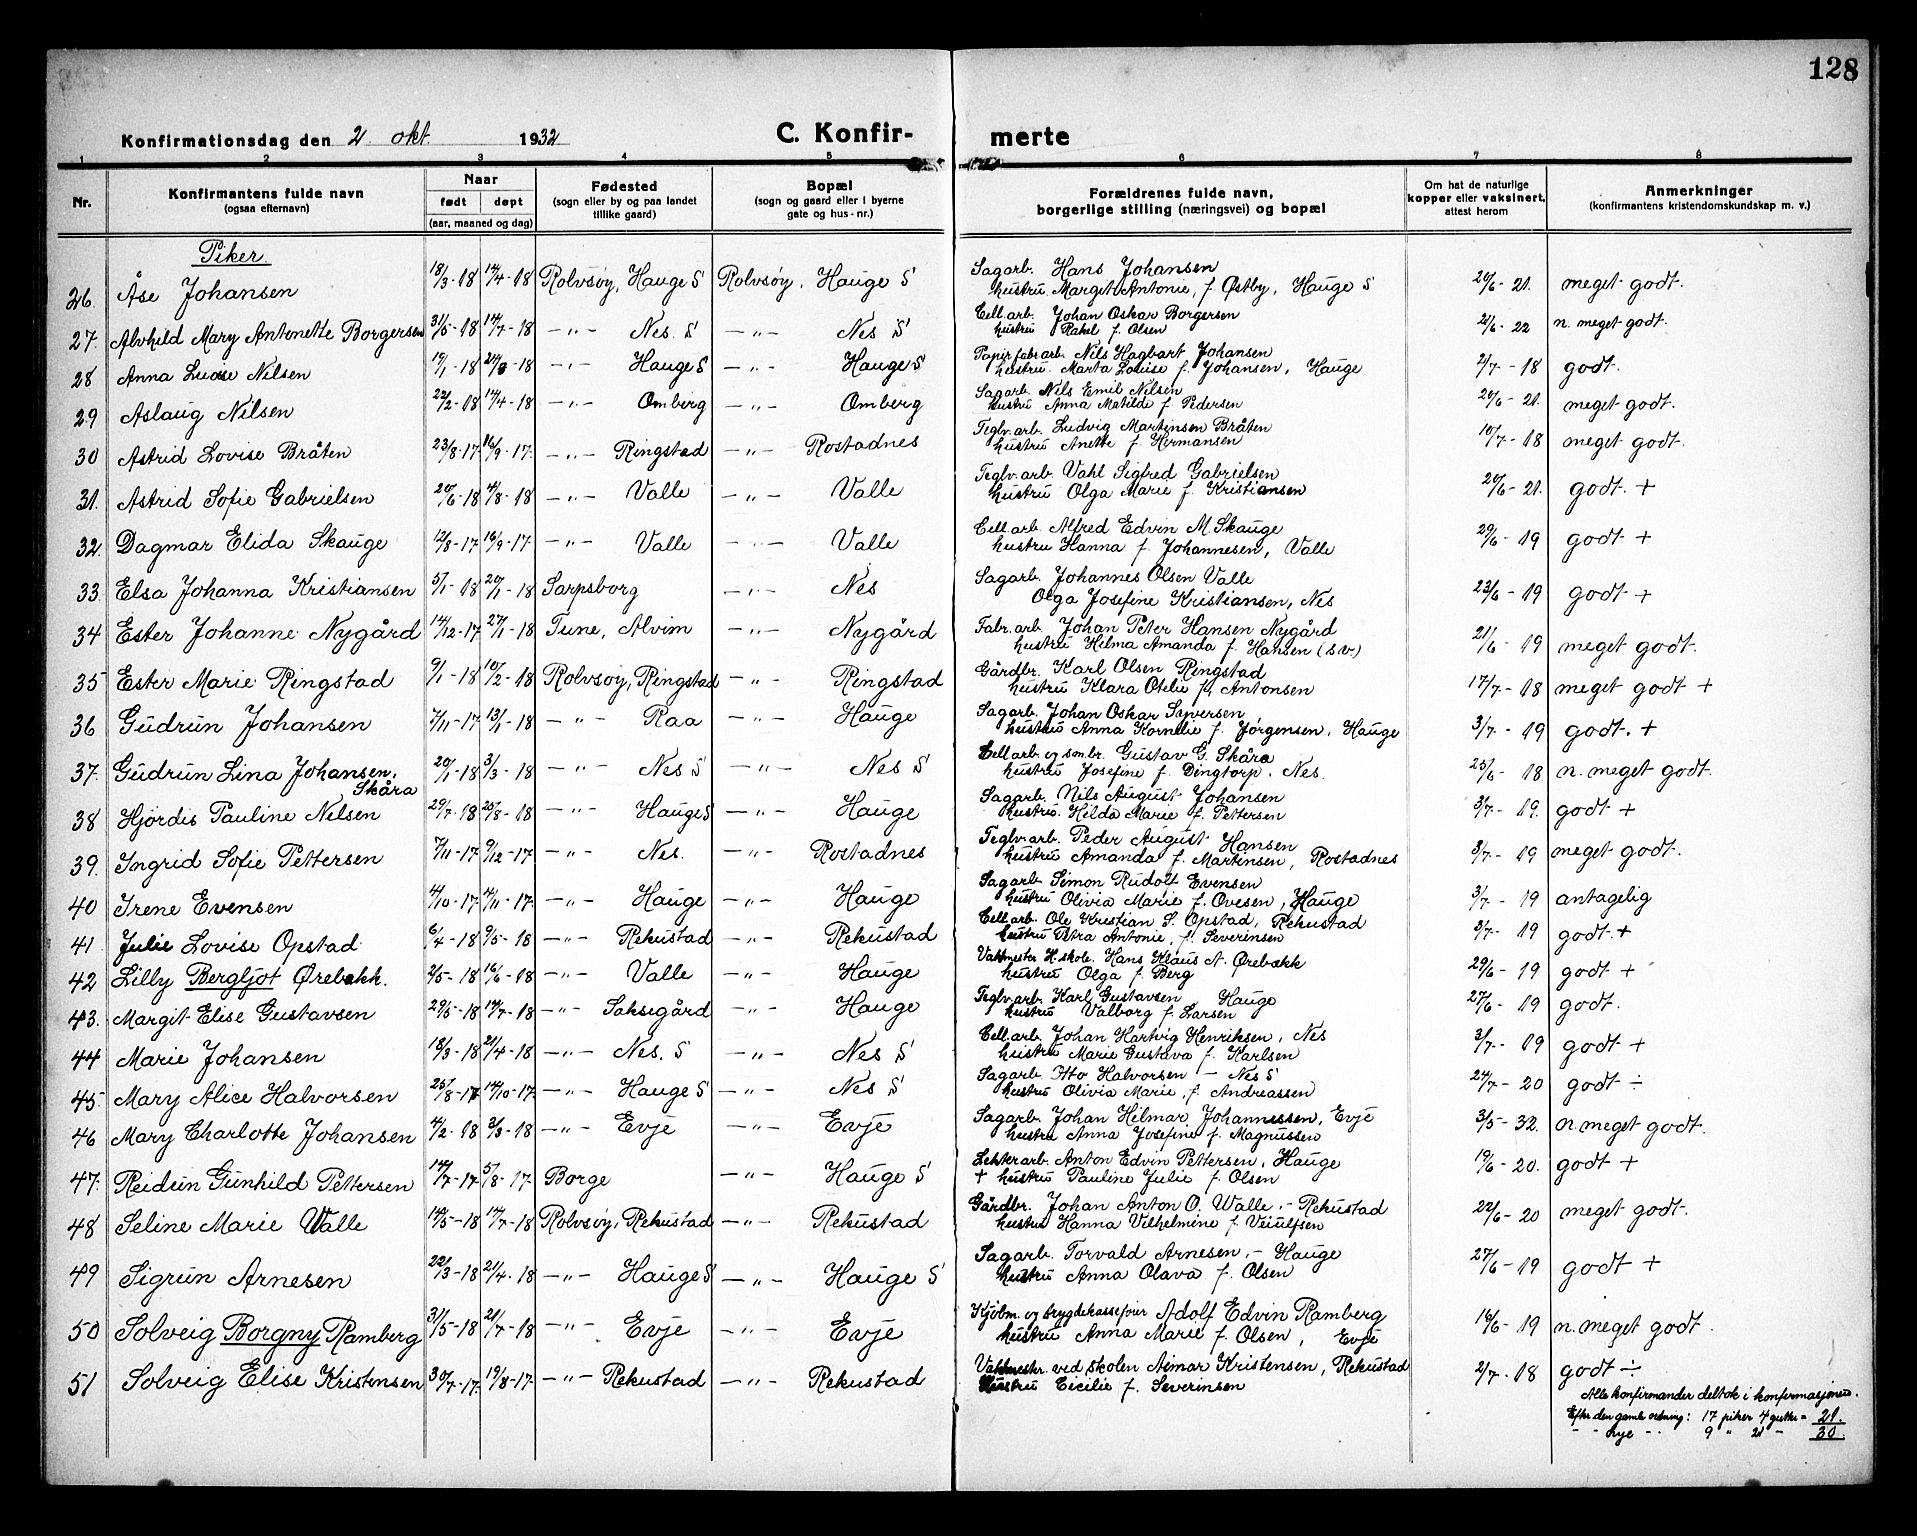 128
Konfirmationsdag den 2 okt. 1932 C. Konfir- merte
1 2 3 4 5 6 7 8
Nr. Konfirmantens fulde navn (ogsaa efternavn) Naar født døpt (aar, maaned og dag) Fødested (sogn eller by og paa landet tillike gaard) Bopæl (sogn og gaard eller i byerne gate og hus-nr.) Forældrenes fulde navn, borgerlige stilling (næringsvei) og bopæl Om hat de naturlige kopper eller vaksinert, attest herom Anmerkninger (konfirmantens kristendomskundskap m. v.)
Piker.
26. Åse Johansen 18/3-18 14/4-18 Rolvsøy, Hauge S Rolvsøy, Hauge S Sagarb. Hans Johansen 20/6-21. meget godt.
hustru Margit Antonie, f. Østby, Hauge S
27. Alvhild Mary Antonette Borgersen 31/5-18 14/7-18 -"- Nes. S -"- Nes S Cell.arb. Johan Oskar Borgersen 21/6-22 n. meget godt.
hustru Rakel f. Olsen
28 Anna Nilsen 19/1-18 -"- Hauge S -"- Hauge S Papirfabrarb. Nils Hagbart Johansen 2/7-18 godt.
hustru. Marta Louise f. Johansen, Hauge
29 Aslaug Nilsen 22/2-18 14/4-18 -"- Omberg -"- Omberg Sagarb. Nils Emil Nilsen 20/6-21. meget godt.
hustru Anna Matilde f. Pedersen
30 Astrid Lovise Bråten 23/8-17 16/9-17. -"- Ringstad -"- Rostadnes Teglv.arb. Ludvig Martinsen Bråten 10/7-18 meget godt.
hustru Anette f. Hermansen
31. Astrid Sofie Gabrielsen 20/6-18 4/8-18 -"- Valle -"- Valle Teglv.arb. Vahl Sigfred Gabrielsen 20/6-21. godt. +
hustru Olga Marie f. Kristiansen
32. Dagmar Elida Skauge 12/8-17 16/9-17 -"- Valle -"- Valle Cell.arb. Alfred Edvin M. Skauge 29/6-19 godt +
hustru Hanna f. Johannesen, Valle
33. Elsa Johanna Kristiansen 5/1-18 20/1-18 Sarpsborg -"- Nes Sagarb. Johannes Olsen Valle 23/6-19 godt +
Olga Josefine Kristiansen, Nes
34 Ester Johanne Nygård 14/12-17 27/1-18 Tune, Alvim -"- Nygård Fabr.arb. Johan Peter Hansen Nygård 21/6-19 meget godt.
hustru Hilma Amanda f. Hansen (s.v)
35 Ester Marie Ringstad 9/1-18 10/2-18 Rolvsøy, Ringstad -"- Ringstad Gårdbr. Karl Olsen Ringstad 17/7-18 meget godt +
hustru Klara Otilie f. Antonsen
36 Gudrun Johansen 7/11-17 13/1-18 -"- Raa -"- Hauge Sagarb. Johan Oskar Syversen 3/7-19 godt. +
hustru Anna Kornelie f. Jörgensen, Hauge
37. Gudrun Lina Johansen. 20/1-18 3/3-18 -"- Nes S -"- Nes S Cell arb. og småbr. Gustav G. Skåra 25/6-18 n. meget godt.
Skåra hustru Josefine f. Dingtorp. Nes.
38 Hjördis Pauline Nilsen 29/7-18 25/8-18 -"- Hauge S -"- Hauge Sagarb. Nils August Johansen 3/7-19. godt +
hustru. Hilda Marie f. Pettersen
39. Ingrid Sofie Pettersen 7/11-17 9/12-17 -"- Nes. -"- Rostadnes Teglv.arb. Peder August Hansen 3/7-19 meget godt.
hustru Amanda f. Martinsen, Rostadnes
40 Irene Evensen 4/10-17 4/11-17. -"- Hauge -"- Hauge Sagarb. Simon Rudolf Evensen 3/7-19 antagelig
hustru Olivia Marie f. Ovesen, Hauge
41. Julie Lovise Opstad 6/4-18 9/5-18 -"- Rekustad -"- Rekustad Cell.arb. Ole Kristian S. Opstad, Rekustad 3/7-19 godt. +
hustru Petra Antonie, f. Severinsen
42 Lilly Bergljot Ørebekk. 2/5-18 16/6-18 -"- Valle -"- Hauge Vaktmester H.skole. Hans Klaus A. Ørebekk 29/6-19 godt +
hustru Olga f. Berg
43. Margit Elise Gustavsen 29/5-18 14/7-18 -"- Saksegård -"- Hauge Teglv.arb. Karl Gustavsen Hauge 27/6-19 godt.
hustru Valborg f. Larsen
44 Marie Johansen 18/3-18 21/4-18 -"- Nes. S -"- Nes S Cell.arb. Johan Hartvig Henriksen, Nes 3/7-19 godt +
hustru Marie Gustava f. Karlsen
45. Mary Alice Halvorsen 25/8-17 14/10-17. -"- Hauge S -"- Nes S Sagarb. Otto Halvorsen - Nes S 24/7-20 godt ÷
hustru Olivia Marie, f. Andreassen
46 Mary Charlotte Johansen 4/2-18 3/3-18 -"- Evje -"- Evje Sagarb. Johan Hilmar Johannessen, Evje 3/5-32. n. meget godt.
hustru Anna Josefine f. Magnussen
47. Reidun Gunhild Pettersen 14/7-17 5/8-17. Borge -"- Hauge S Lekterarb. Anton Edvin Pettersen, Hauge 19/6-20. godt +
+ hustru Pauline Julie f. Olsen
48 Seline Marie Walle 14/5-18 14/7-18 Rolvsøy, Rekustad -"- Rekustad Gårdbr. Johan Anton O. Walle - Rekustad 22/6-20 meget godt.
hustru Hanna Vilhelmine f. Veiulfsen
49 Sigrun Arnesen 22/3-18 21/4-18 -"- Hauge S -"- Hauge S Sagarb. Torvald Arnesen, - Hauge 27/6-19 godt +
hustru Anna Olava f. Olsen
50 Solveig Borgny Ramberg 31/5-18 21/7-18 -"- Evje -"- Evje Kjøbm. og brygdekasserer Adolf Edvin Ramberg 16/6-19 n. meget godt.
hustru Anna Marie f. Olsen, Evje
51 Solveig Elise Kristensen 30/7-17. 19/8-17. -"- Rekustad -"- Rekustad Vaktmester ved skolen Aimar Kristensen, Rekustad 2/7-18 godt ÷
hustru Cicilie f. Severinsen
Alle konfirmander deltok i konfirmasjonen.
Efter den gamle ordning: 17 piker 4 gutter = 21.
- " - nye - " - 9 " 21 - 30.